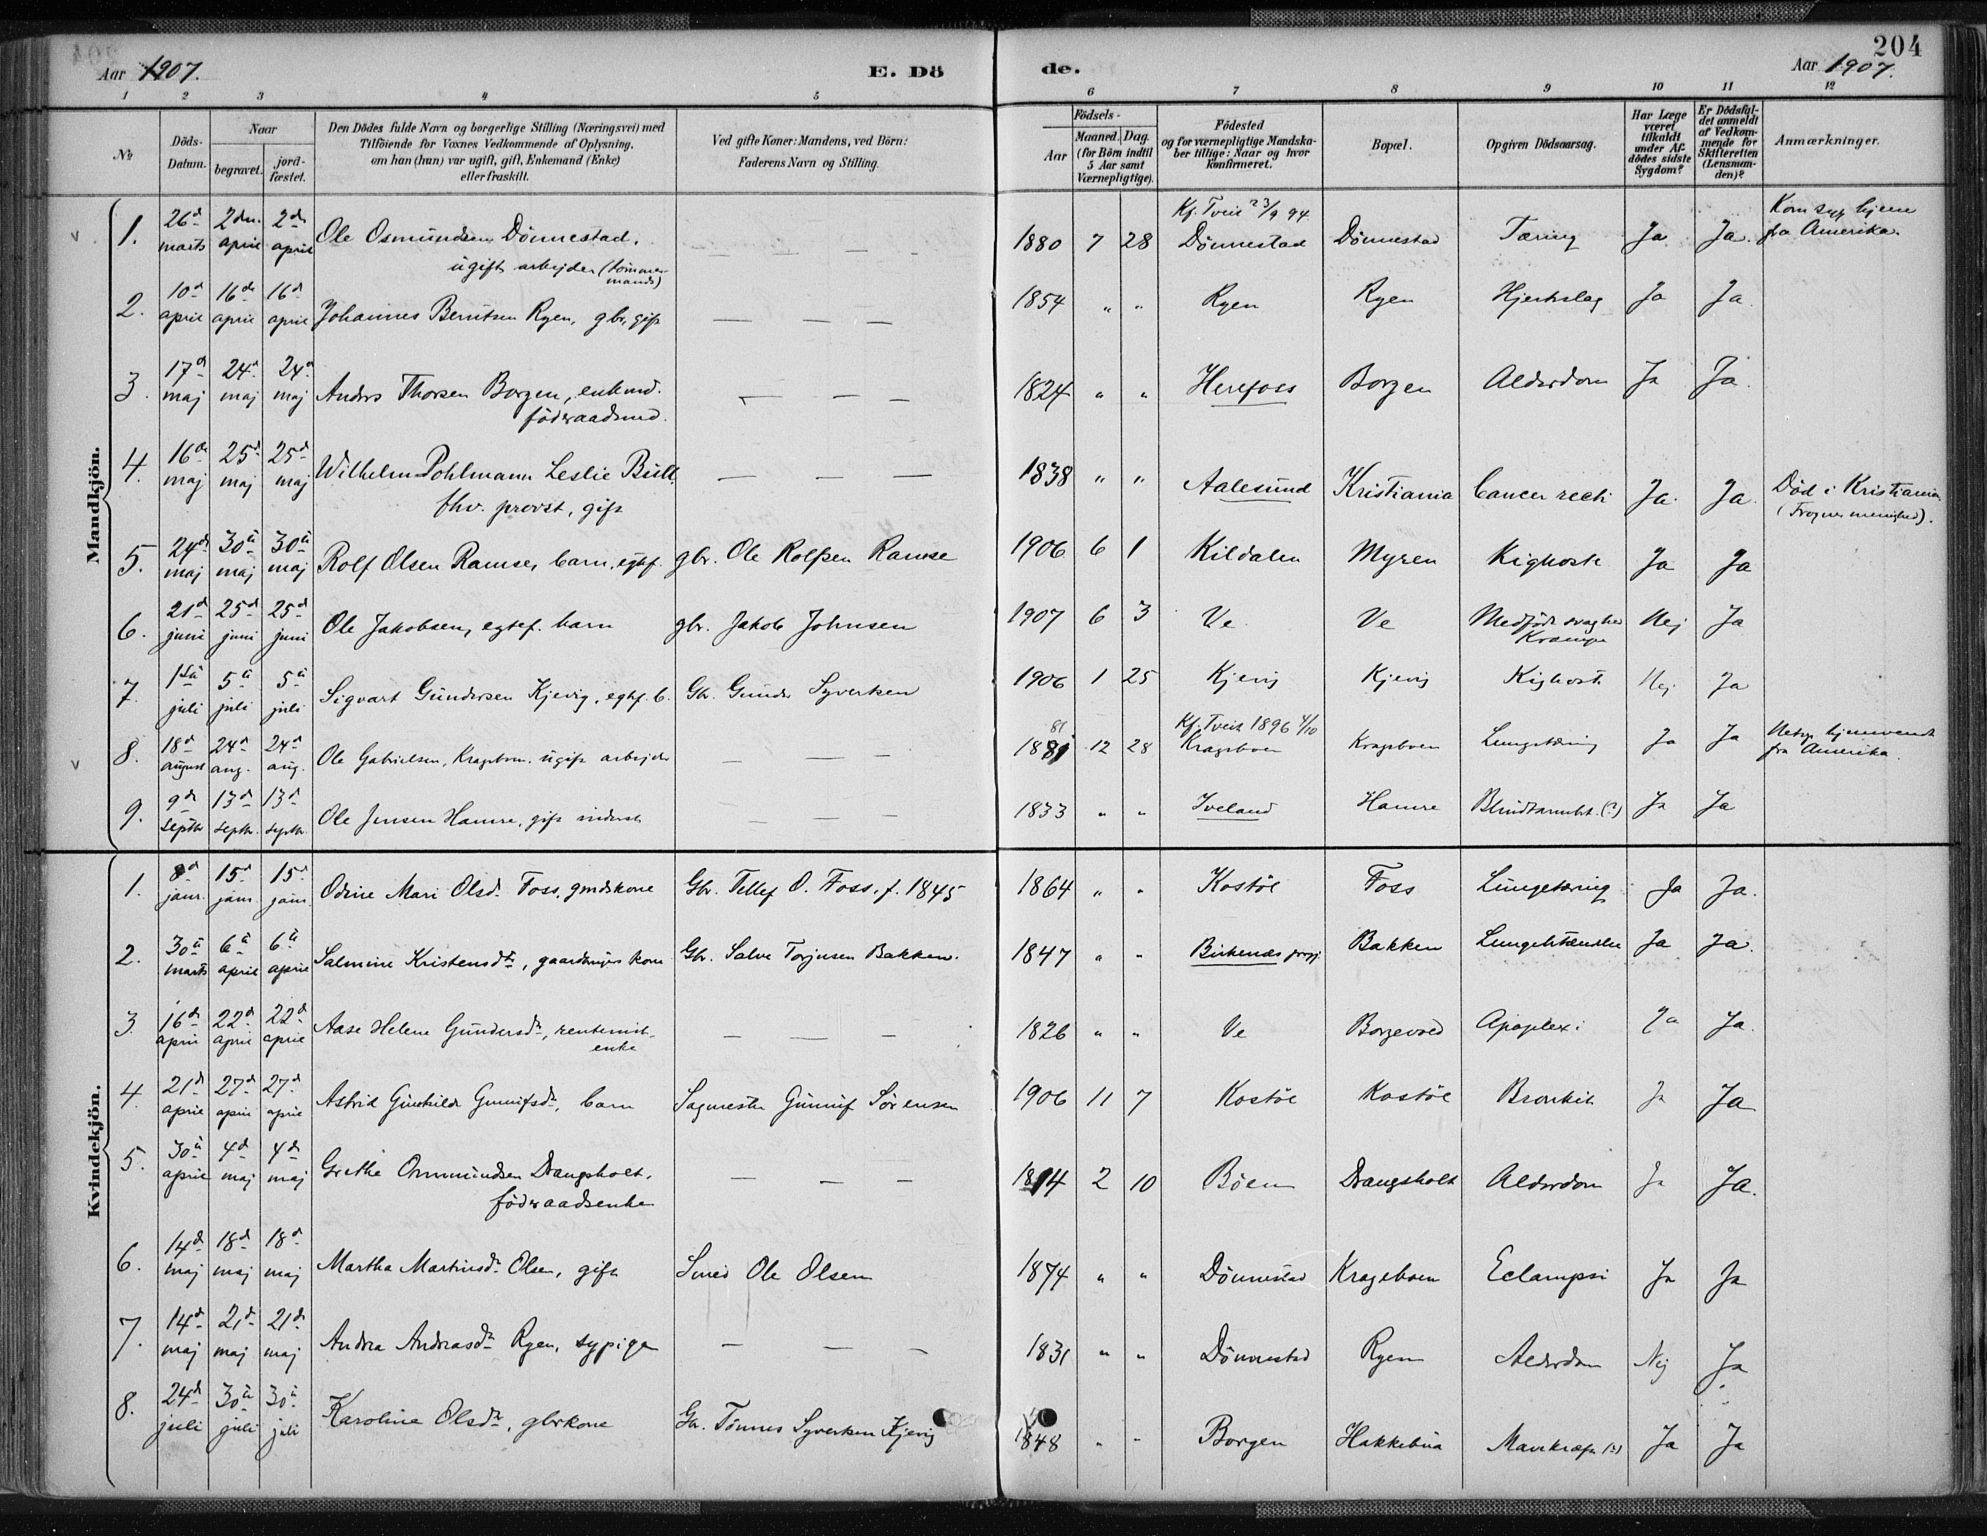 204
Aar 1907.
E. Dö
de.
Aar 1907.
1 2 3 4 5 6 7 8 9 10 11 12
No
Döds-Datum.
Naar
begravet.
jord-fæstet.
Den Dödes fulde Navn og borgerlige Stilling (Næringsvei) med
Tilföiende for Voxnes Vedkommende af Oplysning,
om han (hun) var ugift, gift, Enkemand (Enke)
eller fraskilt.
Ved gifte Koner: Mandens, ved Börn:
Faderens Navn og Stilling.
Födsels-
Aar
Maaned.
Dag.
(for Börn indtil
5 Aar samt
Værnepligtige).
Födested
og for værnepligtige Mandska-
ber tillige: Naar og hvor
konfirmeret.
Bopæl.
Opgiven Dödsaarsag.
Har Læge
været
tilkaldt
under Af-
dödes sidste
Sygdom?
Er Dödsfal-
det anmeldt
af Vedkom-
mende for
Skifteretten
(Lensman-
den)?
Anmærkninger.
Mandkjön.
1. 26d marts 2den april 2d april Ole Osmundsen Dönnestad, — — — 1880 7 28 Kf. Tveit 23/9 94 Dönnestad Dönnestad Tæring Ja Ja. Kom syg hjem
ugift arbejder (tömmermand) fra Amerika.
2. 10d april 16de april 16d april Johannes Berntsen Ryen, gbr, gift — — — 1854 " " Ryen Ryen Hjerteslag Ja Ja
3. 17d maj 24d maj 24d maj Anders Thorsen Borgen, enkmd. — — — 1824 " " Herefoss Borgen Alderdom Ja Ja.
föderaadsmd.
4. 16de maj 25d maj 25d maj Wilhelm Pohlmann Leslie Bull, — — — 1838 " " Aalesund Kristiania Cancer recti Ja. Ja. Död i Kristiania
fhv. provst, gift (Frogner menighed).
5. 24de maj 30te maj 30te maj Rolf Olsen Ramse, barn, egtef. gbr. Ole Rolfsen Ramse 1906 6 1 Kildalen Myren Kighoste Ja Ja
6. 21d juni 25d juni 25d juni Ole Jakobsen, egtef. barn gbr. Jakob Johnsen 1907 6 3 Ve Ve Medfödt svaghed Nej Ja
Krampe
7. 1ste juli 5te juli 5te juli Sigvart Gundersen Kjevig, egtf. b. Gbr. Gunder Syvertsen 1906 1 25 Kjevig Kjevig Kighost. Nej Ja
8. 18d august 24d aug. 24d aug. Ole Gabrielsen, Krageboen. ugift arbejder — — — 1881 81 12 28 Kf. Tveit 1896 4/10 Krageboen Krageboen Lungetæring Ja Ja hjemvendt
fra Amerika.
9. 9de septbr 13d septbr. 13d septbr. Ole Jensen Hamre, gift inderst — — — 1833 " " Iveland Hamre (?) Ja Ja
Kvindekjön.
1. 8d janr. 15d janr. 15d janr. Odine Mari Olsdr. Foss, grmdskone Gbr. Tellef O. Foss, f. 1845 1864 " " Kostöl Foss Lungetæring Ja Ja.
2. 30te marts 6te april 6te april Salmine Kristensdtr, gaardbrugers kone Gbr. Salve Torjusen Bakken. 1847 " " Birkenæs prgj Bakken Ja Ja.
3 16de april 22de april 22de april Aase Helene Gundersdtr, rentenist- — — — 1826 " " Ve Borgevold Apoplexi Ja Ja.
enke
4. 21de april 27de april 27d april Astrid Gunhilde Gunnufsdtr, barn Sagmester Gunnuf Sörensen 1906 11 7 Kostöl Kostöl Bronkit Ja Ja
5. 30te april 4d maj 4de maj Grethe Ommundsen Drangsholt, — — — 1814 2 10 Böen Drangsholt Alderdom Ja Ja.
föderaadsenke
6. 14de maj 18de maj 18d maj Martha Martinsdtr Olsen, gift Smed Ole Olsen 1874 " " Dönnestad Krageboen Eclampsi Ja Ja
7. 14de maj 21de maj 21de maj Andrea Andreasdtr Ryen, sypige — — — 1831 " " Dönnestad Ryen Alderdom Nej Ja
8. 24de juli 30te juli 30te juli Karoline Olsdtr, gbrkone Gbr. Tönnes Syvertsen Kjevig 1848 " " Borgen Hakkebua Mavekræft (?) Ja Ja